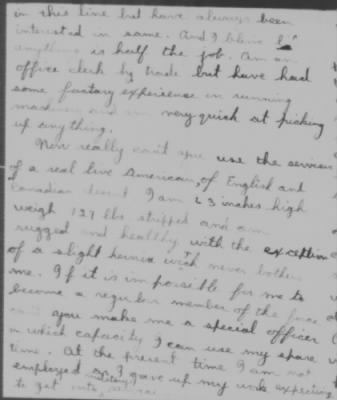 in this line but have always been
interested in same. And I believe
anything is half the job. Am an
office clerk by trade but have had
some factory experience in running
machines and am very quick at picking
up anything.
Now really can't you use the services
of a real live American, of English and
Canadian descent I am 63 inches high
weigh 127 lbs stripped and am
rugged and healthy with the exception
of a slight hernia wich never bothers
me. If it is impossible for me to
become a regular member of the force
can't you make me a special officer
in which capacity I can use my spare
time. At the present time I am not
employed as I gave up my work expecting
to get into military